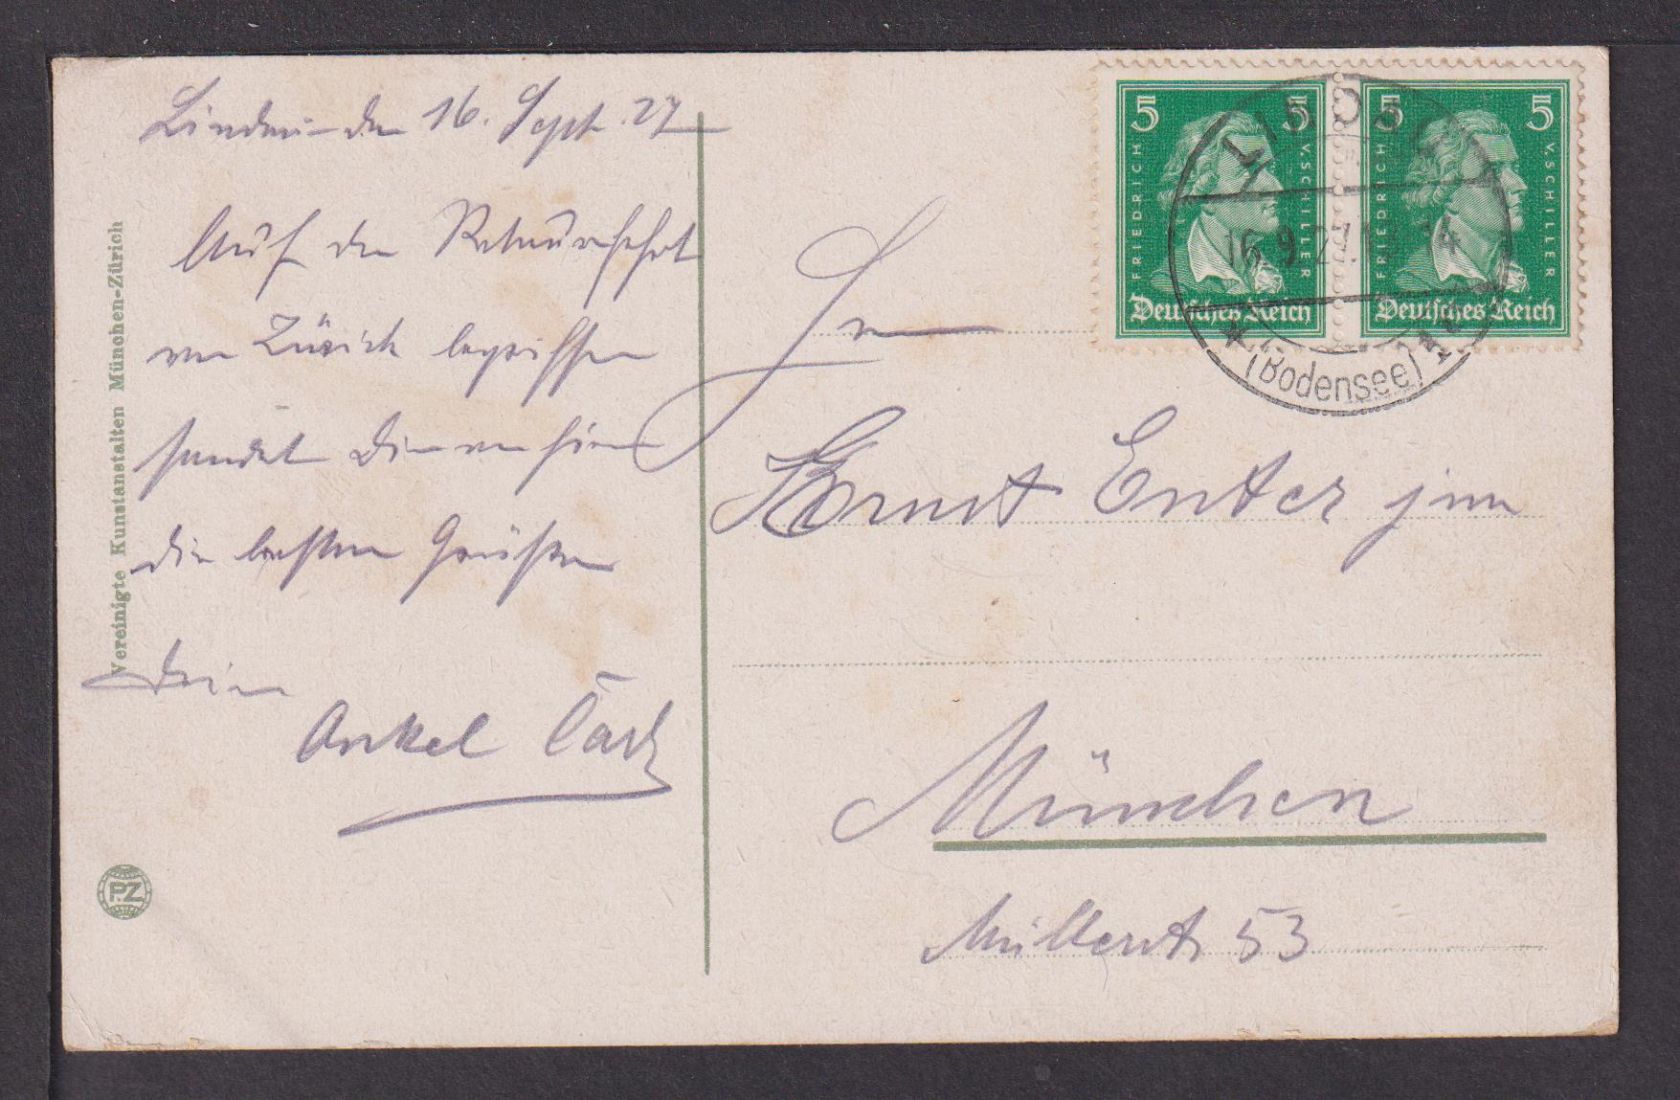 Lindau den 16. Sept. 27
Auf der Retourfahrt
von Zürich begriffen
sendet Dir von hier
die besten Grüße
Dein
Onkel
Hrn
Ernst Enter jun
München
Müllerstr 53
Vereinigte Kunstanstalten München-Zürich
PZ
5 5
FRIEDRICH V. SCHILLER
Deutsches Reich
5 5
FRIEDRICH V. SCHILLER
Deutsches Reich
16.9.27.
(Bodensee)